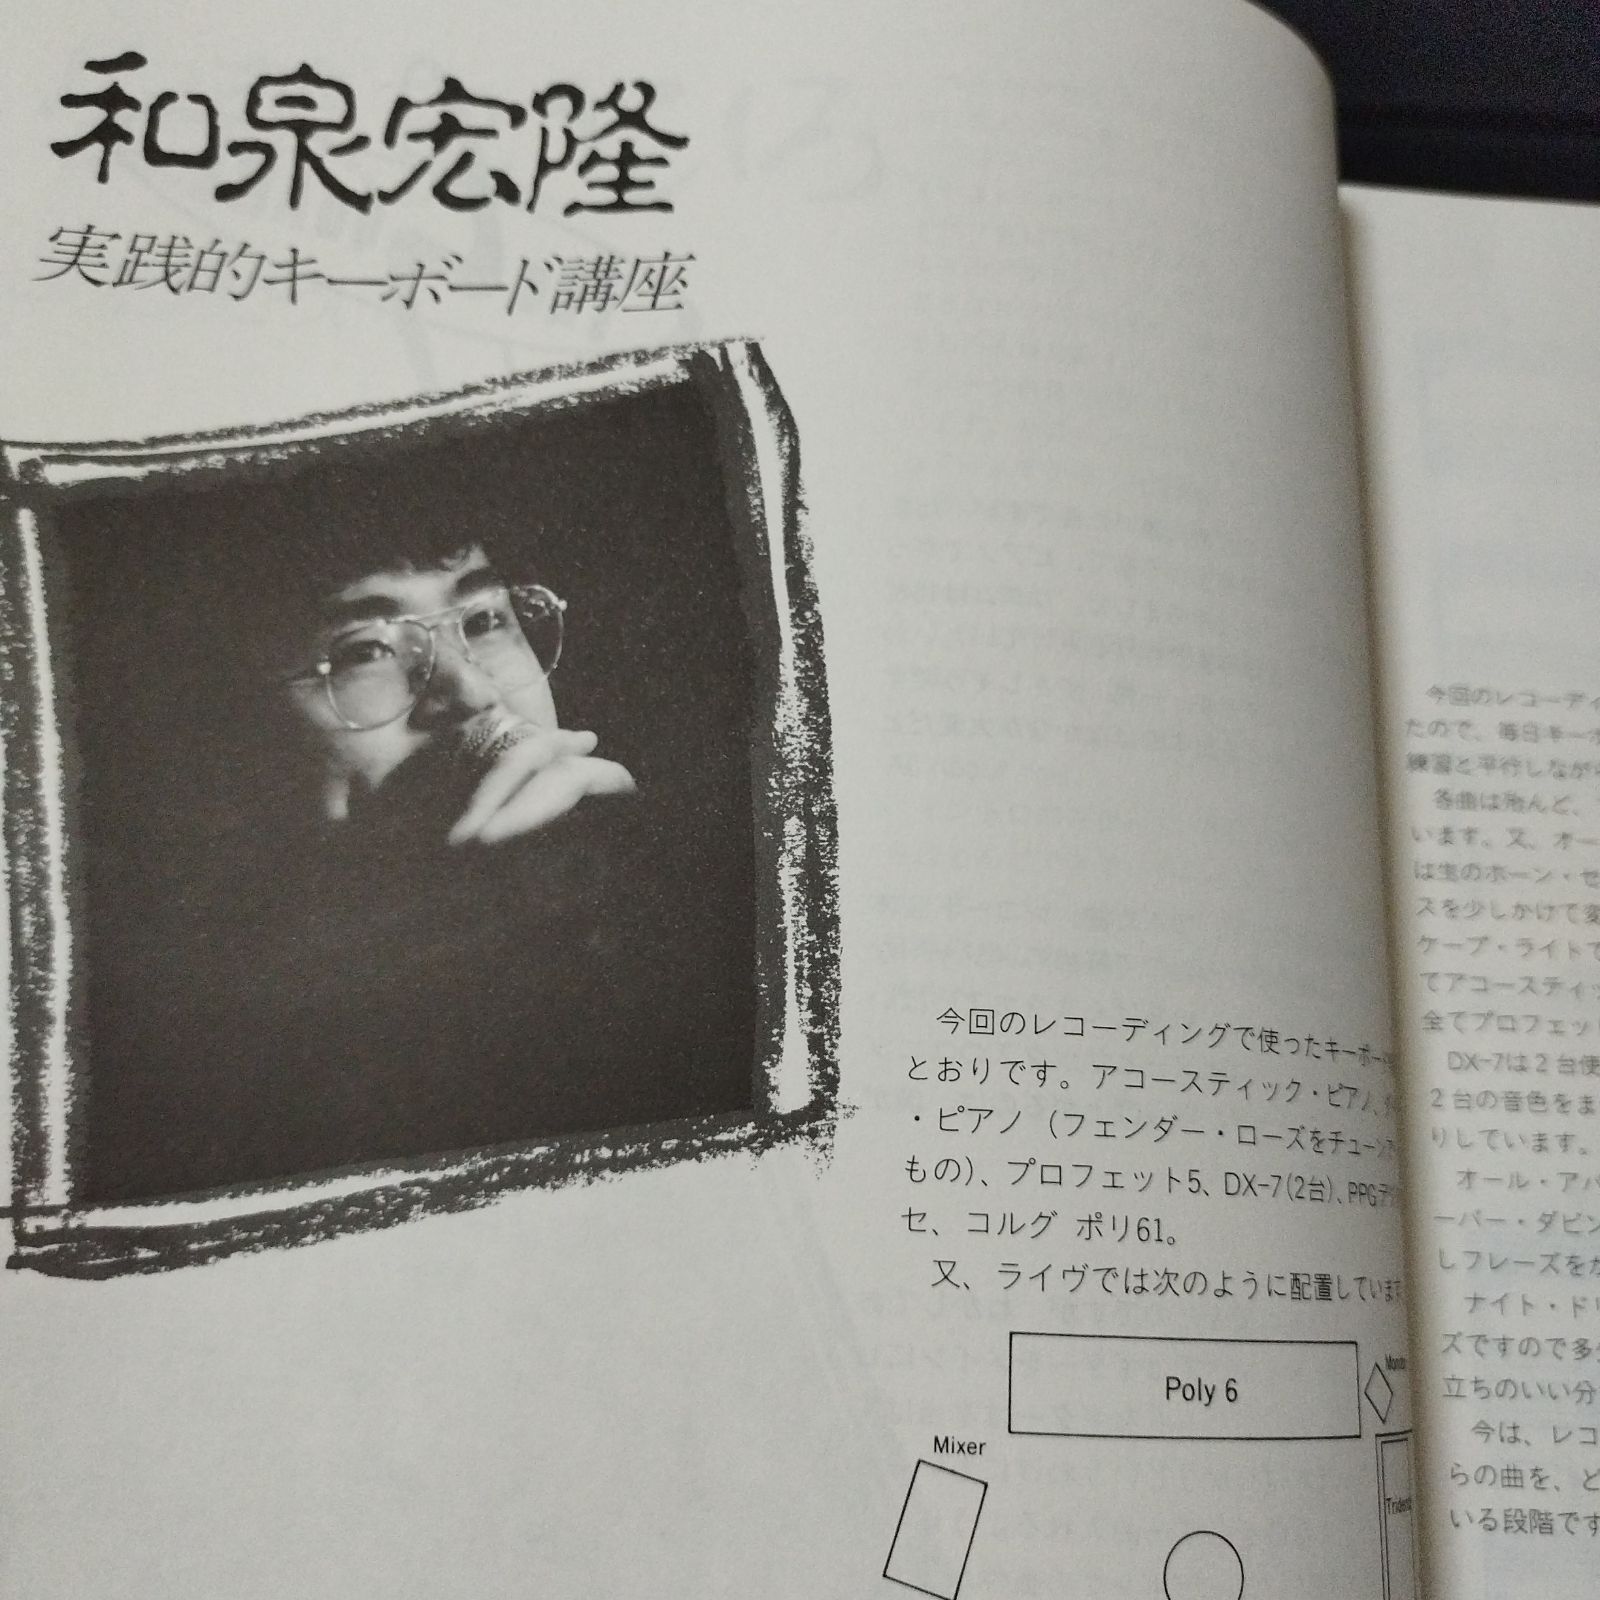 和泉宏隆
実践的キーボード講座
今回のレコーディングで使ったキーボー
とおりです。アコースティック・ピアノ、
・ピアノ（フェンダー・ローズをチューン
もの）、プロフェット5、DX-7(2台)、PPGデジ
セ、コルグ ポリ61。
又、ライヴでは次のように配置しています
Poly 6
Monitor
Mixer
Trident
今回のレコーディ
たので、毎日キーボ
練習と平行しながら
各曲は殆んど、
います。又、オー
は生のホーン・セ
スを少しかけて変
ケープ・ライトで
てアコースティッ
全てプロフェット
DX-7は2台使
2台の音色をま
りしています。
オール・アバ
ーバー・ダビン
しフレーズをか
ナイト・ドリ
ズですので多
立ちのいい分
今は、レコ
らの曲を、ど
いる段階です